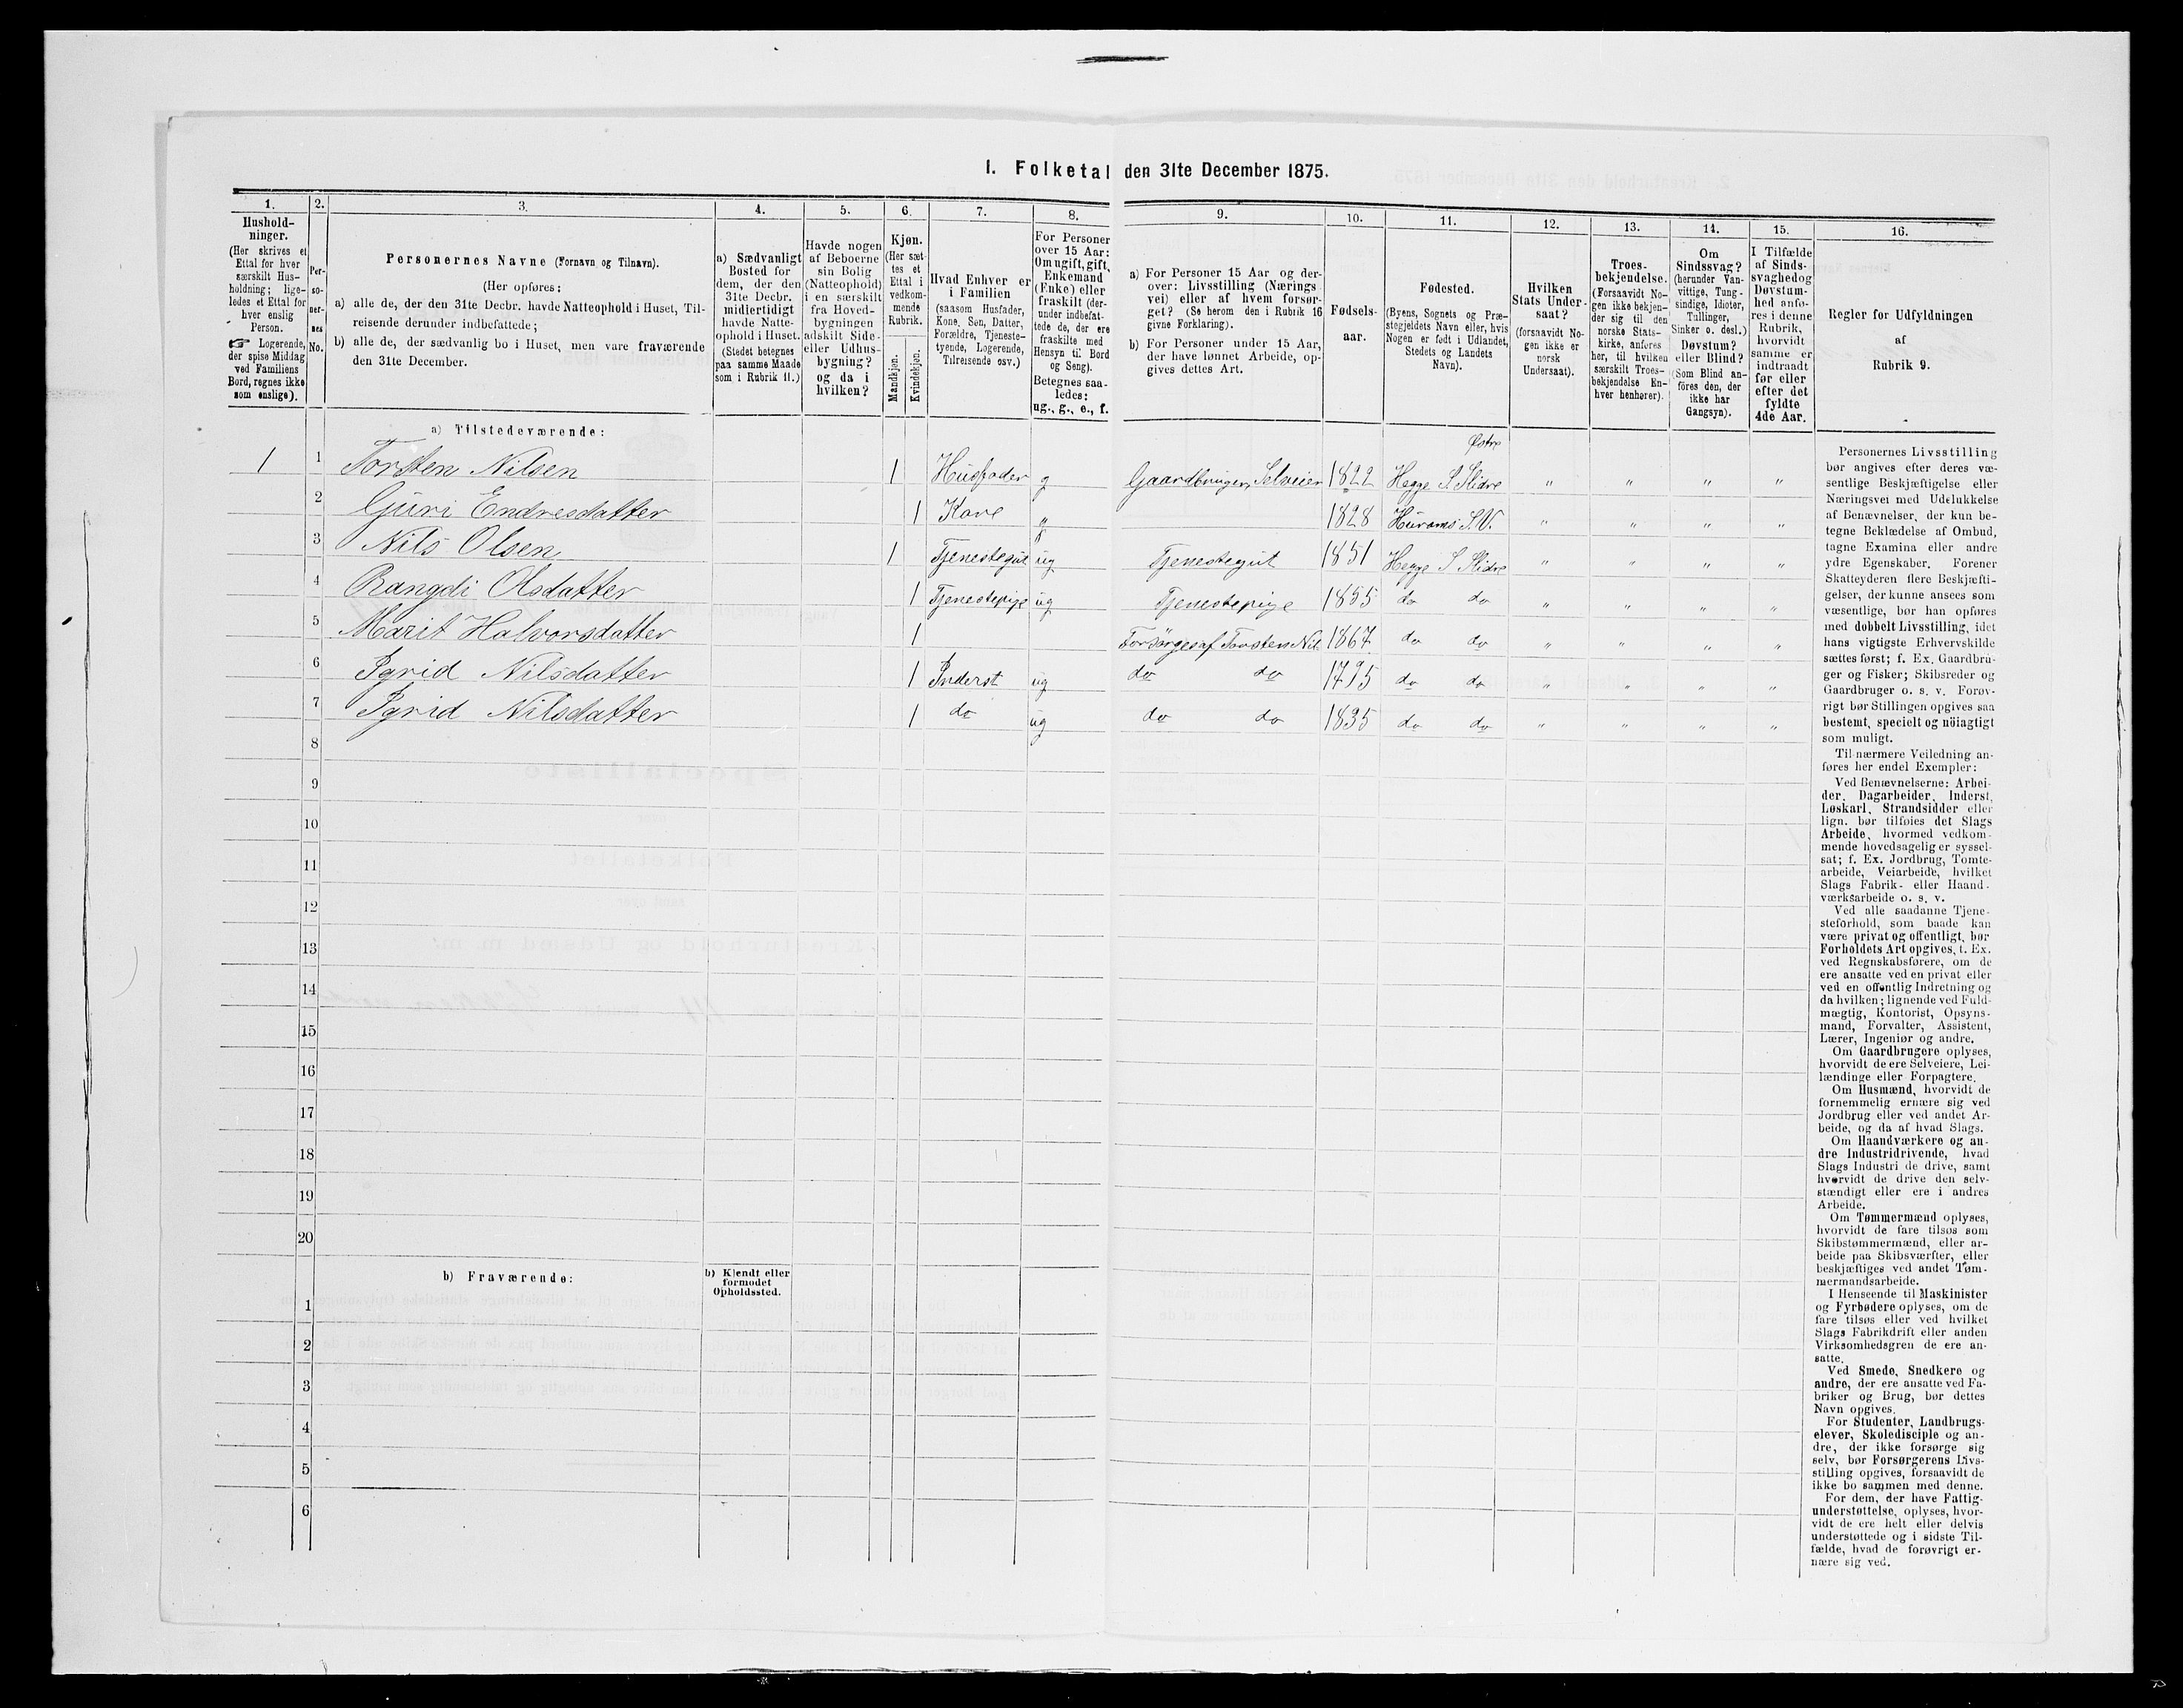 I. Folketal den 31te December 1875.
1. 2. 3. 4. 5. 6. 7. 8. 9. 10. 11. 12. 13. 14. 15. 16.
Hushold-
ninger.
(Her skrives et
Ettal for hver
særskilt Hus-
holdning; lige-
ledes et Ettal for
hver enslig
Person.
☞ Logerende,
der spise Middag
ved Familiens
Bord, regnes ikke
som enslige).
Per-
so-
ner-
nes
No.
Personernes Navne (Fornavn og Tilnavn).
(Her opføres:
a) alle de, der den 31te Decbr. havde Natteophold i Huset, Til-
reisende derunder indbefattede;
b) alle de, der sædvanlig bo i Huset, men vare fraværende
den 31te December.
a) Sædvanligt
Bosted for
dem, der den
31te Decbr.
midlertidigt
havde Natte-
ophold i Huset.
(Stedet betegnes
paa samme Maade
som i Rubrik 11.)
Havde nogen
af Beboerne
sin Bolig
(Natteophold)
i en særskilt
fra Hoved-
bygningen
adskilt Side-
eller Udhus-
bygning?
og da i
hvilken?
Kjøn.
(Her sæt-
tes et
Ettal i
vedkom-
mende
Rubrik.
Mandkjøn.
Kvindekjøn.
Hvad Enhver er
i Familien
(saasom Husfader,
Kone, Søn, Datter,
Forældre, Tjeneste-
tyende, Logerende,
Tilreisende osv.)
For Personer
over 15 Aar:
Om ugift, gift,
Enkemand
(Enke) eller
fraskilt (der-
under indbefat-
tede de, der ere
fraskilte med
Hensyn til Bord
og Seng).
Betegnes saa-
ledes:
ug., g., e., f.
a) For Personer 15 Aar og der-
over: Livsstilling (Nærings-
vei) eller af hvem forsør-
get? (Se herom den i Rubrik 16
givne Forklaring).
b) For Personer under 15 Aar,
der have lønnet Arbeide, op-
gives dettes Art.
Fødsels-
aar.
Fødested.
(Byens, Sognets og Præ-
stegjeldets Navn eller, hvis
Nogen er født i Udlandet,
Stedets og Landets
Navn).
Hvilken
Stats Under-
saat?
(forsaavidt No-
gen ikke er
norsk
Undersaat).
Troes-
bekjendelse.
(Forsaavidt No-
gen ikke bekjen-
der sig til den
norske Stats-
kirke, anføres
her, til hvilken
særskilt Troes-
bekjendelse En-
hver henhører).
Om
Sindssvag?
(herunder Van-
vittige, Tung-
sindige, Idioter,
Tullinger,
Sinker o. desl.)
Døvstum?
eller Blind?
(Som Blind an-
føres den, der
ikke har
Gangsyn).
I Tilfælde
af Sinds-
svaghed og
Døvstum-
hed anfø-
res i denne
Rubrik,
hvorvidt
samme er
indtraadt
før eller
efter det
fyldte
4de Aar.
Regler for Udfyldningen
af
Rubrik 9.
a) Tilstedeværende:
Østre
1 1 Torsten Nilsen 1 Husfader g Gaardbruger, Selveier 1822 Hegge S Slidre " " " "
2 Guri Endresdatter 1 Kone " 1828 Hurums S.V. " " " "
3 Nils Olsen 1 Tjenestegut ug Tjenestegut 1851 Hegge S Slidre " " " "
4 Rangdi Olsdatter 1 Tjenestepige ug Tjenestepige 1855 do do " " " "
5 Marit Halvorsdatter 1 Forsörges af Torsten Nil. 1867 do do " " " "
6 Igrid Nilsdatter 1 Inderst ug do do 1795 do do " " " "
7 Igrid Nilsdatter 1 do ug do do 1835 do do " " " "
8
9
10
11
12
13
14
15
16
17
18
19
20
b) Fraværende:
b) Kjendt eller
formodet
Opholdssted.
1
2
3
4
5
6
Personernes Livsstilling
bør angives efter deres væ-
sentlige Beskjæftigelse eller
Næringsvei med Udelukkelse
af Benævnelser, der kun be-
tegne Beklædelse af Ombud,
tagne Examina eller andre
ydre Egenskaber. Forener
Skatteyderen flere Beskjæfti-
gelser, der kunne ansees som
væsentlige, bør han opføres
med dobbelt Livsstilling, idet
hans vigtigste Erhvervskilde
sættes først; f. Ex. Gaardbru-
ger og Fisker; Skibsreder og
Gaardbruger o. s. v. Forøv-
rigt bør Stillingen opgives saa
bestemt, specielt og nöiagtigt
som muligt.
Til nærmere Veiledning an-
føres her endel Exempler:
Ved Benævnelserne: Arbei-
der, Dagarbeider, Inderst,
Løskarl, Strandsidder eller
lign. bør tilføies det Slags
Arbeide, hvormed vedkom-
mende hovedsagelig er syssel-
sat; f. Ex. Jordbrug, Tomte-
arbeide, Veiarbeide, hvilket
Slags Fabrik- eller Haand-
værksarbeide o. s. v.
Ved alle saadanne Tjene-
steforhold, som baade kan
være privat og offentligt, bør
Forholdets Art opgives, t. Ex.
ved Regnskabsførere, om de
ere ansatte ved en privat eller
ved en offentlig Indretning og
da hvilken; lignende ved Fuld-
mægtig, Kontorist, Opsyns-
mand, Forvalter, Assistent,
Lærer, Ingeniør og andre.
Om Gaardbrugere oplyses,
hvorvidt de ere Selveiere, Lei-
lændinge eller Forpagtere.
Om Husmænd, hvorvidt de
fornemmelig ernære sig ved
Jordbrug eller ved andet Ar-
beide, og da af hvad Slags.
Om Haandværkere og an-
dre Industridrivende, hvad
Slags Industri de drive, samt
hvorvidt de drive den selv-
stændigt eller ere i andres
Arbeide.
Om Tømmermænd oplyses,
hvorvidt de fare tilsøs som
Skibstømmermænd, eller ar-
beide paa Skibsværfter, eller
beskjæftiges ved andet Tøm-
mermandsarbeide.
I Henseende til Maskinister
og Fyrbødere oplyses, om de
fare tilsøs eller ved hvilket
Slags Fabrikdrift eller anden
Virksomhedsgren de ere an-
satte.
Ved Smede, Snedkere og
andre, der ere ansatte ved Fa-
briker og Brug, bør dettes
Navn opgives.
For Studenter, Landbrugs-
elever, Skoledisciple og an-
dre, der ikke forsørge sig
selv, bør Forsørgerens Livs-
stilling opgives, forsaavidt de
ikke bo sammen med denne.
For dem, der have Fattig-
understøttelse, oplyses, hvor-
vidt de ere helt eller delvis
understøttede og i sidste Til-
fælde, hvad de forøvrigt er-
nære sig ved.